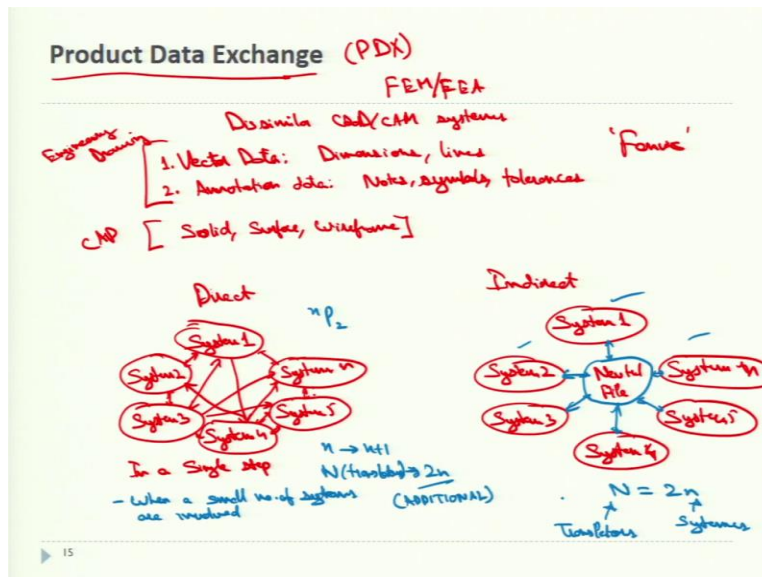 Product Data Exchange (PDX)
FEM/FEA
Dissimilar CAD/CAM systems
Engineering Drawing
1. Vector Data: Dimensions, lines
2. Annotation data: Notes, symbols, tolerances
CAD [Solid, Surface, Wireframe]
Direct
ⁿP₂
System 1
System 2
System n
System 3
System 4
System 5
In a Single step
- When a small no. of systems
are involved
n → n+1
N (translators) → 2n
(ADDITIONAL)
Indirect
System 1
System 2
Neutral
File
System n
System 3
System 5
System 4
N = 2n
Translators
Systems
15